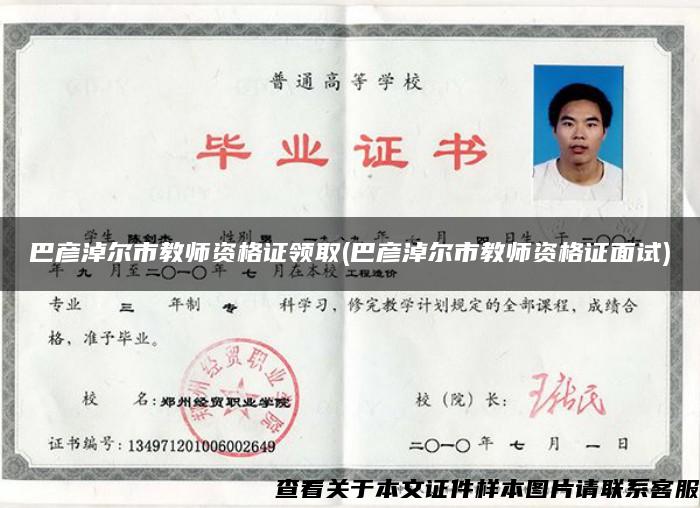 普通高等学校
毕业证书
学生 性别 一九八 年 月 四 日生 于二〇〇
巴彦淖尔市教师资格证领取(巴彦淖尔市教师资格证面试)
年九月至二〇一〇年七月在本校 工程造价
专业 三 年制 专 科学习,修完教学计划规定的全部课程,成绩合
格,准予毕业。
校 名:郑州经贸职业学院
郑州经贸职业学院
校(院)长:
证书编号:134971201006002649
二〇一〇年七月一日
查看关于本文证件样本图片请联系客服